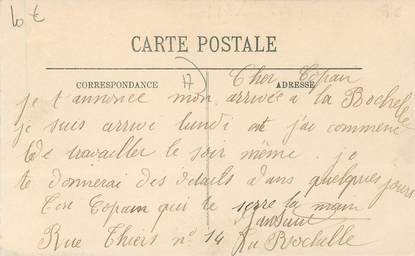 10 €
CARTE POSTALE
17
CORRESPONDANCE
ADRESSE
Cher Copain
je t'annonce mon arrivée à la Rochelle
je suis arrivé lundi et j'ai commencé
de travailler le soir même. je
te donnerai des détails dans quelques jours
Ton Copain qui te serre la main
Rue Thiers n° 14 La Rochelle